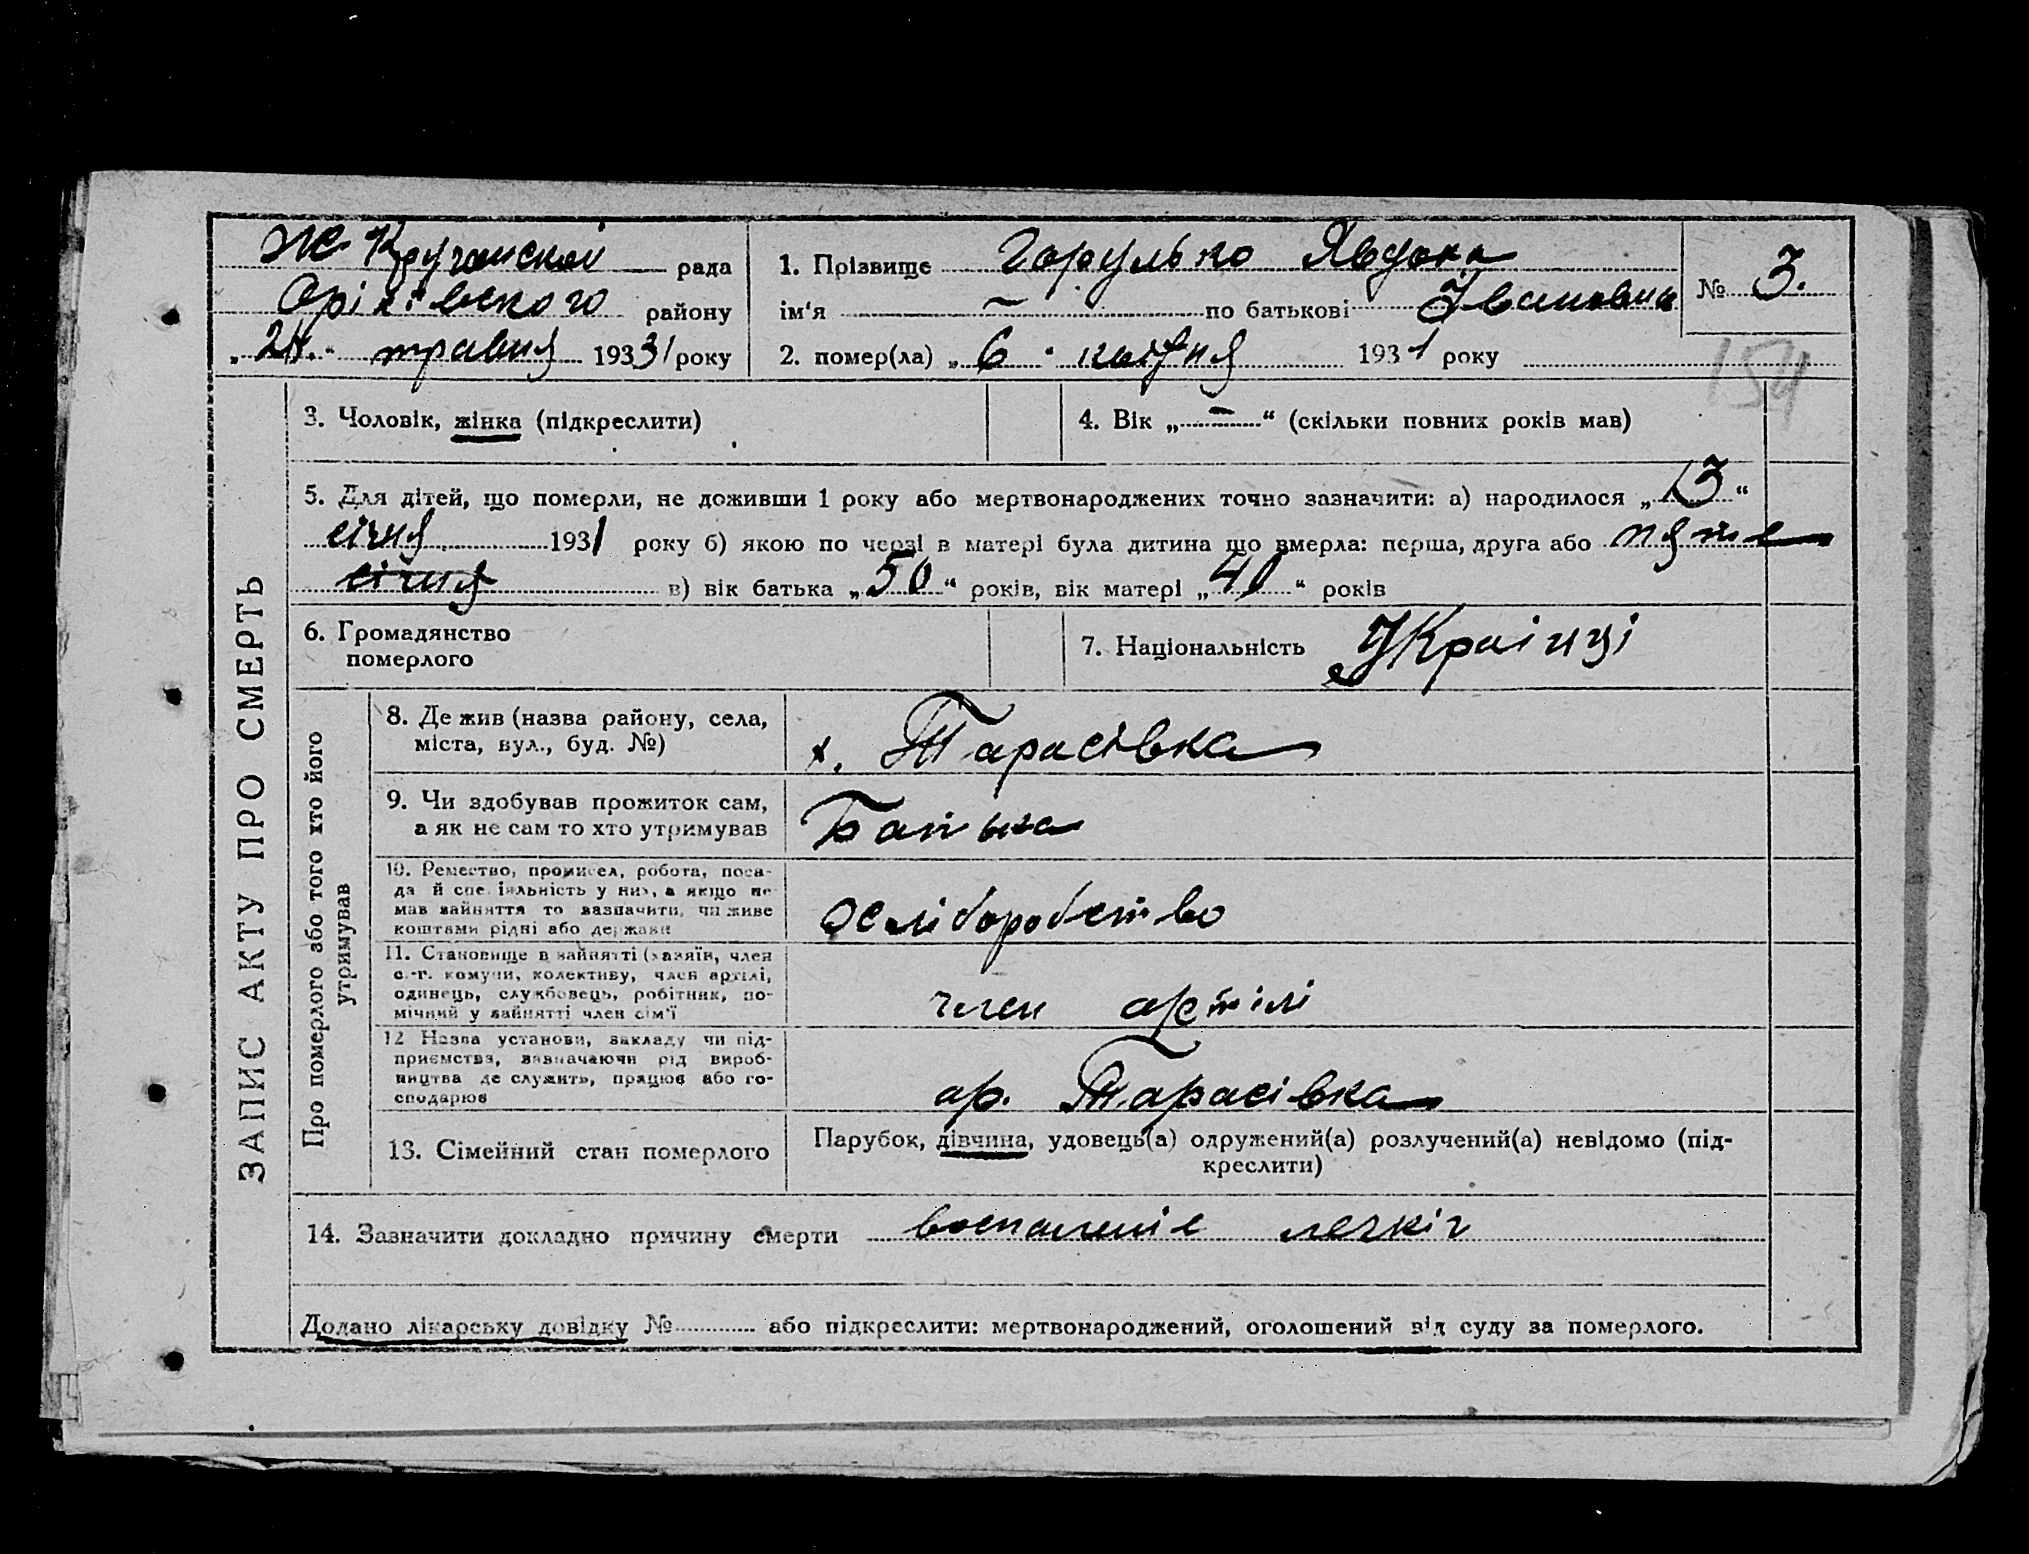 Ж Кручанской рада
Оріхівського району
„ 24. “ травня 19331 року
1. Прізвище Горулько Явдоха
ім'я — по батькові Івановна
2. помер(ла) „ 6 “ 1931 року
№ 3.
154
ЗАПИС АКТУ ПРО СМЕРТЬ
3. Чоловік, жінка (підкреслити)
4. Вік „ — “ (скільки повних років мав)
5. Для дітей, що померли, не доживши 1 року або мертвонароджених точно зазначити: а) народилося „ 13 “
січня 1931 року б) якою по черзі в матері була дитина що вмерла: перша, друга або пяте
січня в) вік батька „ 50 “ років, вік матері „ 40 “ років
6. Громадянство
померлого
7. Національність Україиці
Про померлого або того хто його
утримував
8. Де жив (назва району, села,
міста, вул., буд. №)
х. Тарасівка
9. Чи здобував прожиток сам,
а як не сам то хто утримував
Батька
10. Ремество, промисел, робота, поса-
да й спеціяльність у них, а якщо не
мав зайняття то зазначити, чи живе
коштами рідні або держави
хліборобство
11. Становище в зайнятті (хазяїн, член
с.-г. комуни, колективу, член артілі,
одинець, службовець, робітник, по-
мічний у зайнятті член сім'ї
член артілі
12 Назва установи, закладу чи під-
приємства, зазначаючи рід вироб-
ництва де служить, працює або го-
сподарює
ар. Тарасівка
13. Сімейний стан померлого
Парубок, дівчина, удовець(а) одружений(а) розлучений(а) невідомо (під-
креслити)
14. Зазначити докладно причину смерти воспаленіє легкіг
Додано лікарську довідку № або підкреслити: мертвонароджений, оголошений від суду за померлого.